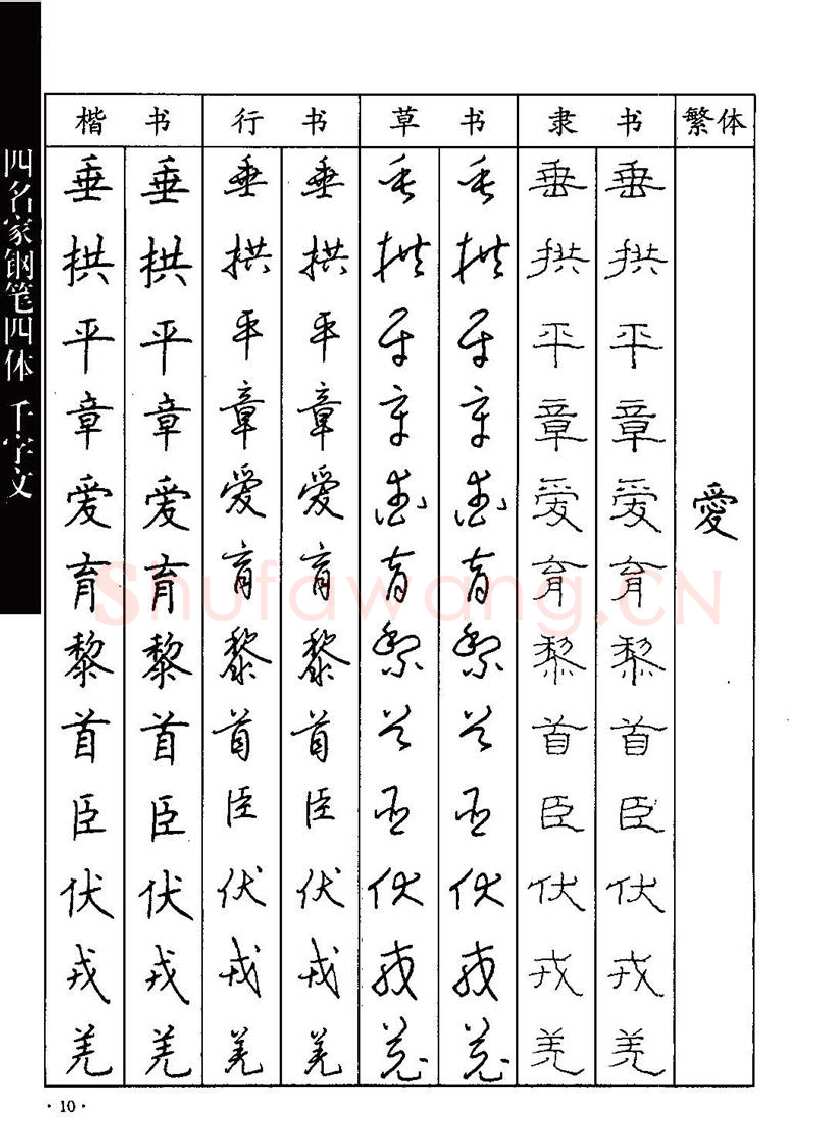 四名家钢笔四体 千字文
楷书 行书 草书 隶书 繁体
垂 垂 垂 垂 垂 垂 垂 垂
拱 拱 拱 拱 拱 拱 拱 拱
平 平 平 平 平 平 平 平
章 章 章 章 章 章 章 章
爱 爱 爱 爱 爱 爱 爱 爱 愛
育 育 育 育 育 育 育 育
Shufawang.CN
黎 黎 黎 黎 黎 黎 黎 黎
首 首 首 首 首 首 首 首
臣 臣 臣 臣 臣 臣 臣 臣
伏 伏 伏 伏 伏 伏 伏 伏
戎 戎 戎 戎 戎 戎 戎 戎
羌 羌 羌 羌 羌 羌 羌 羌
·10·